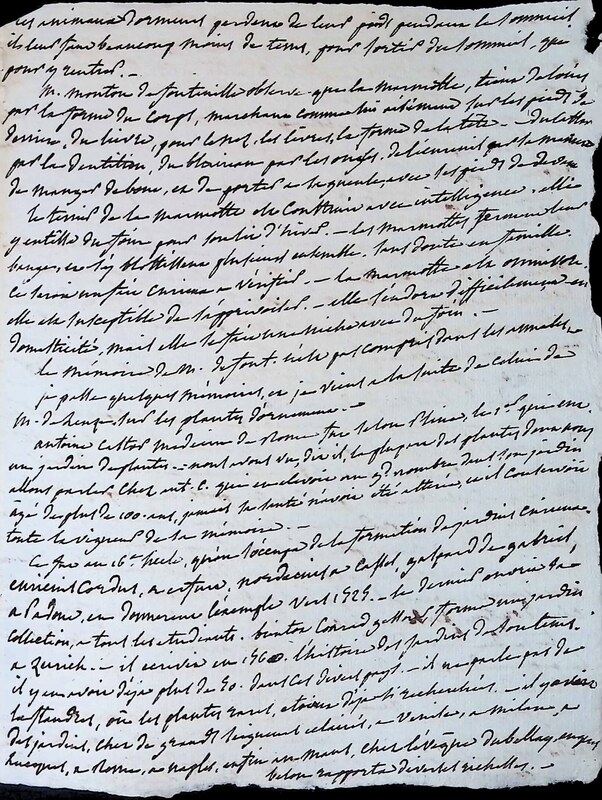 les animaux dormeurs perdent de leur poids pendant le sommeil
il leur faut beaucoup moins de tems, pour sortir du sommeil, que
pour y rentrer. —
M. mouton de fontenille observe que la marmotte, tient de l'ours
par la forme du corps, marchant comme lui aisément sur les pieds de
derrière, du lievre, pour le nez, les levres, la forme de la tête — du
par la dentition, du blaireau par les ongles, de l'écureuil par la manière
de manger debout, et de porter à la gueule, avec les pieds de devant
le terrier de la marmotte est construit avec intelligence, elle
y entasse du foin pour son lit d'hiver. — les marmottes ferment leur
et s'y blottissent plusieurs ensemble, sans doute en famille
ce serait un fait curieux à vérifier. — la marmotte est omnivore
elle est susceptible de s'apprivoiser. — elle s'endort difficilement en
domesticité, mais elle se fait une niche avec du foin. —
le mémoire de M. de font. n'est pas compris dans les annales, —
je passe quelques mémoires, et je viens à la suite de celui de
M. sur les plantes d'ornement. —
antoine castor medecin de Rome fut selon Pline, le 1er qui eut
un jardin de plantes. — nous avons vu dit il, la plupart des plantes dont nous
allons parler chez ant. C. qui en élevoit un gd. nombre dans son jardin
agé de plus de 100 ans, jamais sa santé n'avoit été altérée, et il conservoit
toute la vigueur de sa mémoire. —
Ce fut au 16e siecle, qu'on s'occupa de la formation de jardins curieux.
euricius Cordus, a erfurt, nordecius a Cassel, gaspard de gabrieli,
a Padoue, en donnerent l'exemple vers 1525. — le dernier ouvrit sa
collection, a tous les etudiants. bientot Conrad gessner forma un jardin
a Zurich. — il ecrivit en 1560. l'histoire des jardins de
il y en avoit deja plus de 50. dans ces divers pays. — il ne parle pas de
la flandres, où les plantes rares, etoient deja si recherchées. — il y avoit
des jardins, chez de grands seigneurs éclairés, a Venise, a Milan, a
Lucques, a Rome, a naples, enfin au mans, chez l'évêque du bellay, ou
belon rapporta diverses richesses. —